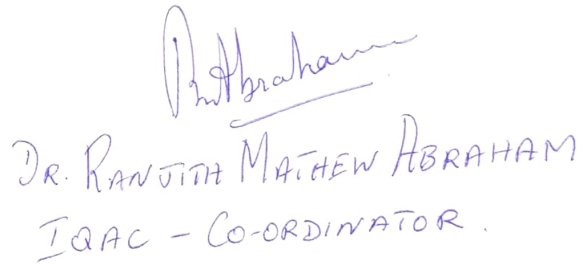 RMAbraham
DR. RANJITH MATHEW ABRAHAM
IQAC - CO-ORDINATOR.